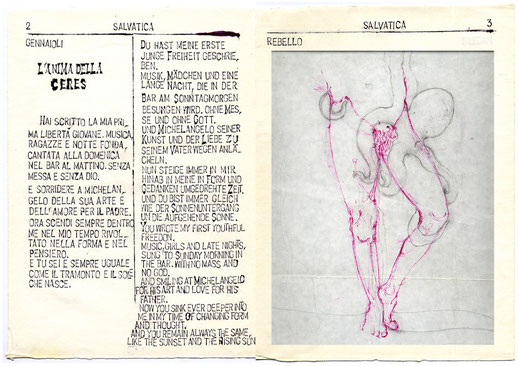 2 SALVATICA
GENNAIOLI
L'ANIMA DELLA
CERES
HAI SCRITTO LA MIA PRI-
MA LIBERTÀ GIOVANE. MUSICA,
RAGAZZE E NOTTE FONDA,
CANTATA ALLA DOMENICA
NEL BAR AL MATTINO. SENZA
MESSA E SENZA DIO.
E SORRIDERE A MICHELAN-
GELO DELLA SUA ARTE E
DELL'AMORE PER IL PADRE.
ORA SCENDI SEMPRE DENTRO
ME NEL MIO TEMPO RIVOL-
TATO NELLA FORMA E NEL
PENSIERO.
E TU SEI E SEMPRE UGUALE
COME IL TRAMONTO E IL SOLE
CHE NASCE.
DU HAST MEINE ERSTE
JUNGE FREIHEIT GESCHRIE-
BEN.
MUSIK, MÄDCHEN UND EINE
LANGE NACHT, DIE IN DER
BAR AM SONNTAGMORGEN
BESUNGEN WIRD. OHNE MES-
SE UND OHNE GOTT.
UND MICHELANGELO SEINER
KUNST UND DER LIEBE ZU
SEINEM VATER WEGEN ANLÄ-
CHELN.
NUN STEIGE IMMER IN MIR
HINAB IN MEINE IN FORM UND
GEDANKEN UMGEDREHTE ZEIT.
UND DU BIST IMMER GLEICH
WIE DER SONNENUNTERGANG
UND DIE AUFGEHENDE SONNE.
YOU WROTE MY FIRST YOUTHFUL
FREEDOM.
MUSIC, GIRLS AND LATE NIGHTS,
SUNG TO SUNDAY MORNING IN
THE BAR. WITH NO MASS AND
NO GOD.
AND SMILING AT MICHELANGELO
FOR HIS ART AND LOVE FOR HIS
FATHER.
NOW YOU SINK EVER DEEPER INTO
ME IN MY TIME OF CHANGING FORM
AND THOUGHT.
AND YOU REMAIN ALWAYS THE SAME,
LIKE THE SUNSET AND THE RISING SUN
SALVATICA 3
REBELLO